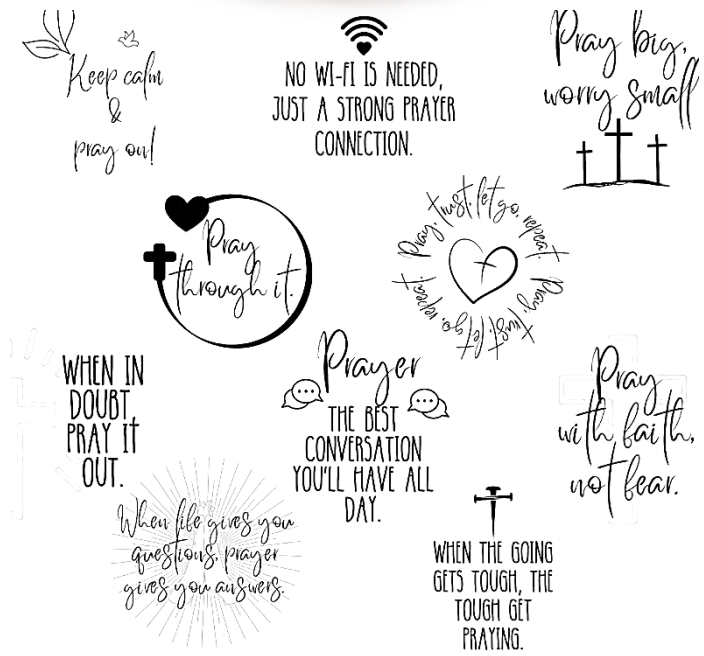 Keep calm
&
pray on!
NO WI-FI IS NEEDED,
JUST A STRONG PRAYER
CONNECTION.
Pray big,
worry small
Pray
through it.
Pray, trust, let go, repeat.
Pray, trust, let go, repeat.
WHEN IN
DOUBT,
PRAY IT
OUT.
Prayer
THE BEST
CONVERSATION
YOU'LL HAVE ALL
DAY.
Pray
with faith,
not fear.
When life gives you
questions, prayer
gives you answers.
WHEN THE GOING
GETS TOUGH, THE
TOUGH GET
PRAYING.